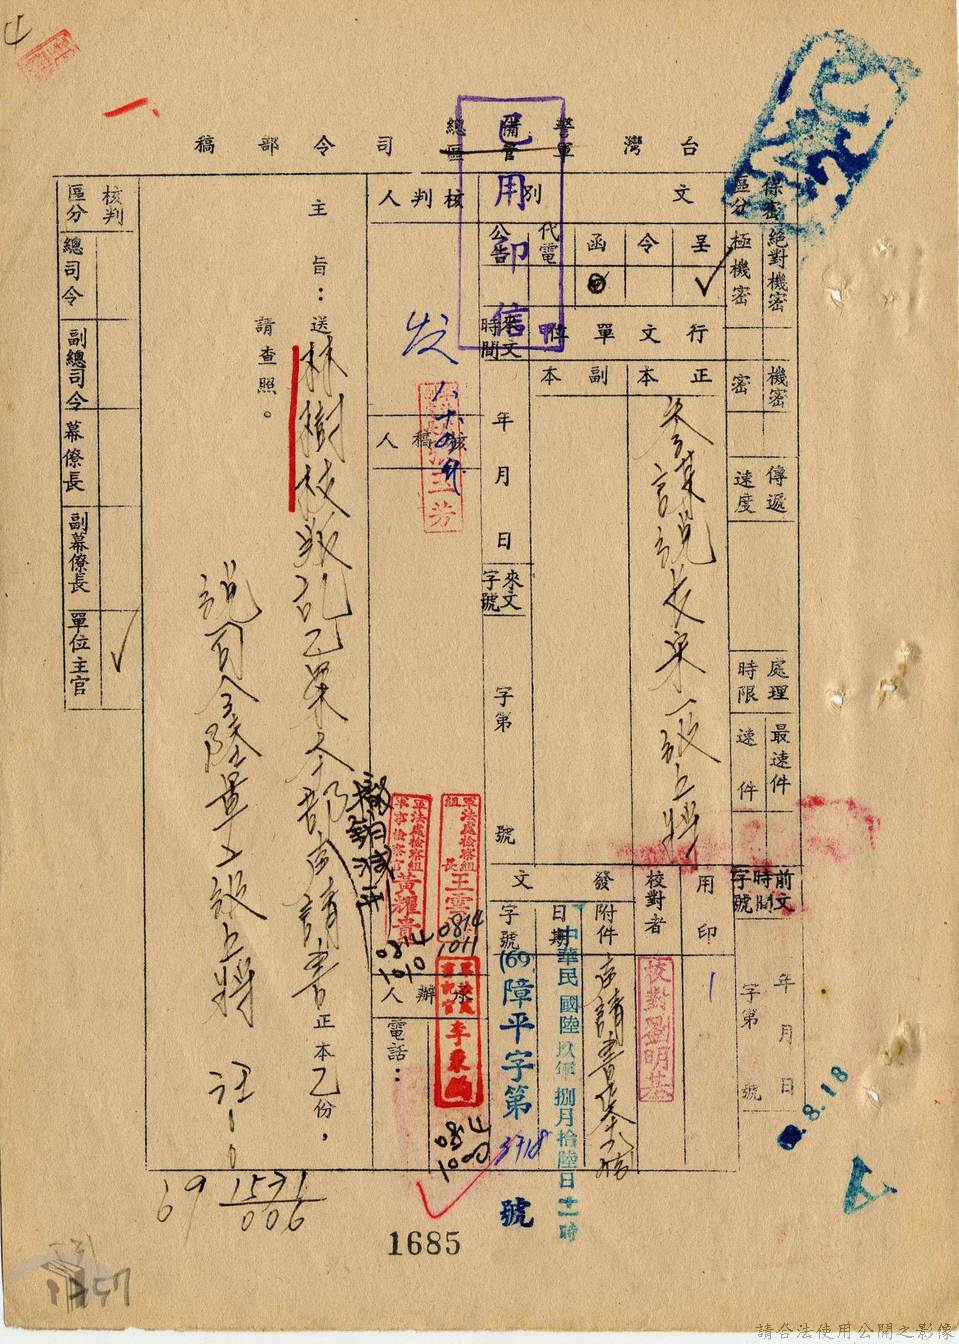 台灣警備總司令部稿
軍管區
已用印信
保密區分
絕對機密
極機密
機密
密
傳遞速度
處理時限
最速件
速件
前文時間字號
年 月 日
字第 號
文別
呈
令
函
代電
公告
行文單位
正本
副本
參謀總長宋一級上將
用印
校對者
校對劉明基
發文
附件
日期
中華民國陸玖年捌月拾陸日十一時
字號
(69)障平字第3718號
來文時間
年 月 日
來文字號
字第 號
核判人
發
核稿人
軍法處檢察組組長王雲
0814
1011
軍法處檢察組軍事檢察官黃耀貴
0814
1010
承辦人
書記官李秉鈞
0814
1000
電話：
主旨：送林樹枝叛亂乙案本部聲請書正本乙份，
請查照。
總司令陸軍二級上將 汪○○
核判區分
總司令
副總司令
幕僚長
副幕僚長
單位主官
69 1571
006
8.18
1685
請合法使用公開之影像